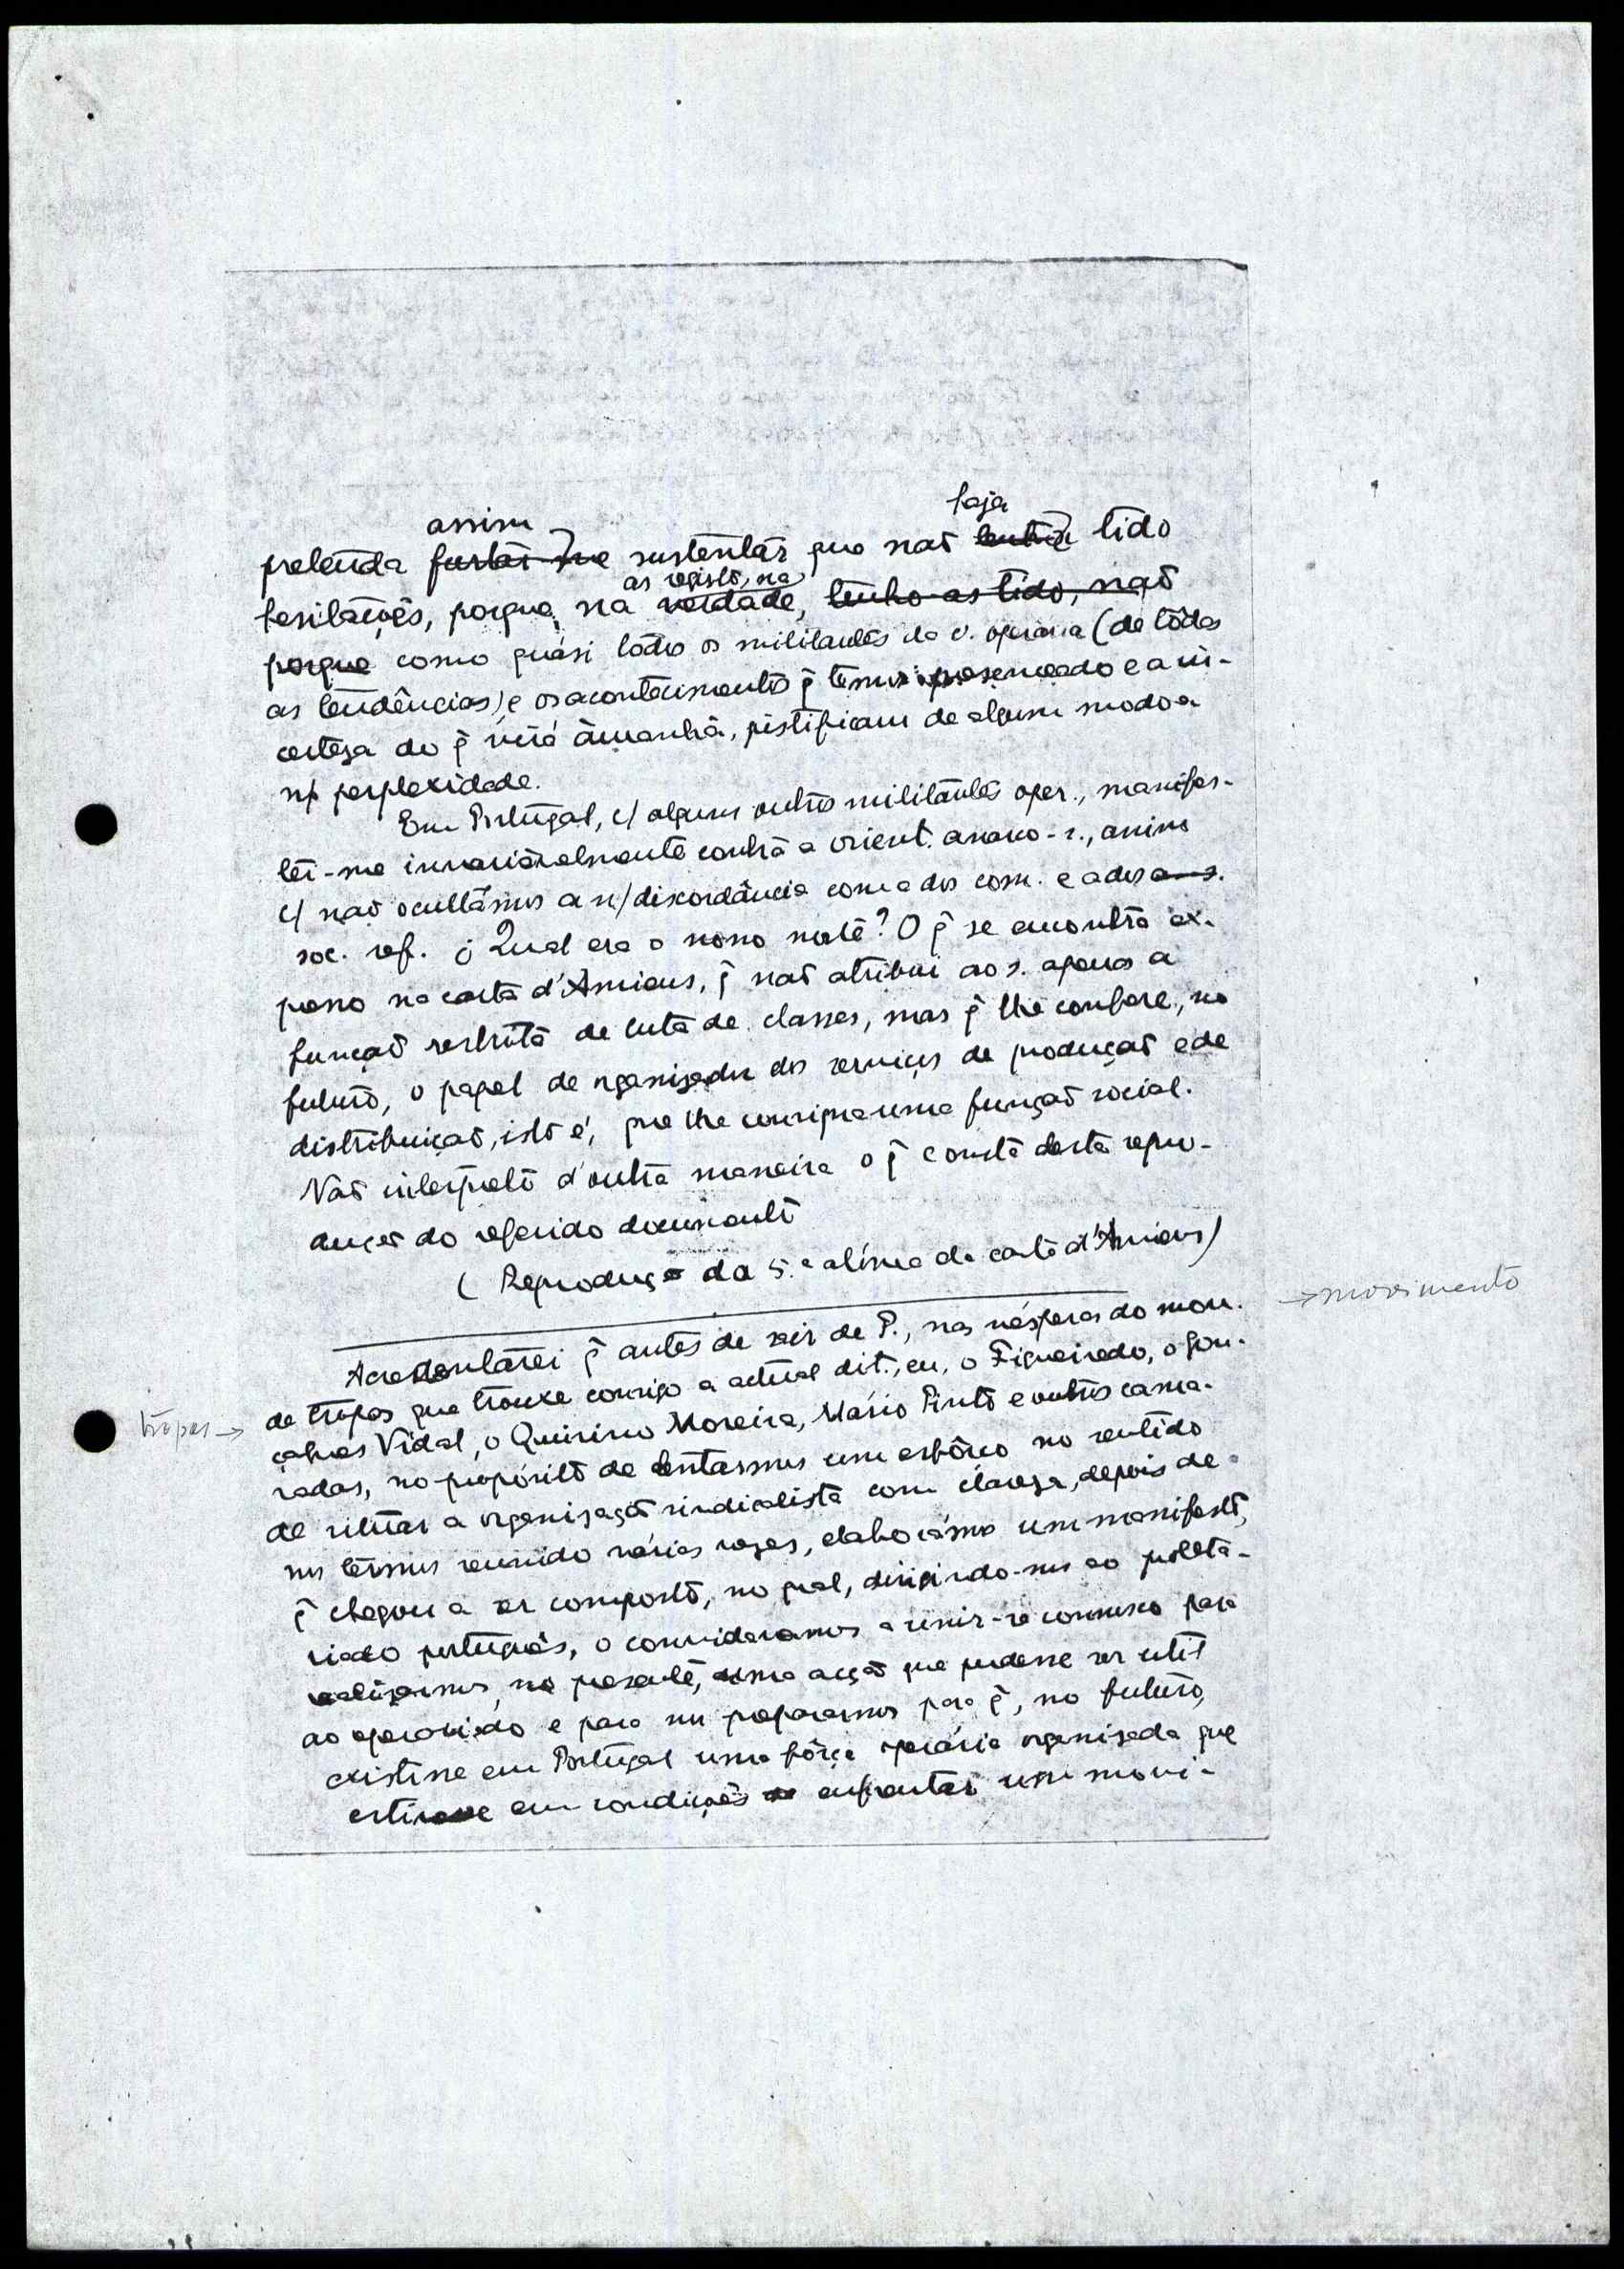 assim haja
pretenda sustentar que não tido
as registo, na
hesitações, porque, na verdade, tenho-as tido, não
porque como quási todos os militantes da o. operária (de tôdas
as tendências) e os acontecimentos q̃ temos presenceado e a in-
certeza do q̃ virá àmanhã, justificam de algum modo a
n/ perplexidade.
Em Portugal, c/ alguns outros militantes oper., manifes-
tei-me invariàvelmente contra a orient. anarco-s., assim
c/ não ocultámos a n/ discordância com a dos com. e a dos
soc. ref. ¿Qual era o nosso norte? O q̃ se encontra ex-
posso na carta d'Amiens, q̃ não atribui ao s. apenas a
função restrita de luta de classes, mas q̃ lhe confere, no
futuro, o papel de organizador dos serviços de produção e de
distribuição, isto é, que lhe consigna uma função social.
Não interpreto d'outra maneira o q̃ consta desta repro-
dução do referido documento
(Reprodução da 5.ª alínea da carta d'Amiens)
Acrescentarei q̃ antes de sair de P., nas vésperas do mov. → movimento
tropas → de tropas que trouxe consigo a actual dit., eu, o Figueiredo, o Gon-
çalves Vidal, o Quirino Moreira, Mário Pinto e outros cama-
radas, no propósito de tentarmos um esfôrço no sentido
de situar a organização sindicalista com clareza, depois de
nos termos reunido várias vezes, elaborámos um manifesto,
q̃ chegou a ser composto, no qual, dirigindo-nos ao proleta-
riado português, o convidavamos a reunir-se connosco para
realizarmos, no presente, uma acção que pudesse ser util
ao operariado e para nos prepararmos para q̃, no futuro,
existisse em Portugal uma fôrça operária organizada que
estivesse em condições de enfrentar um movi-